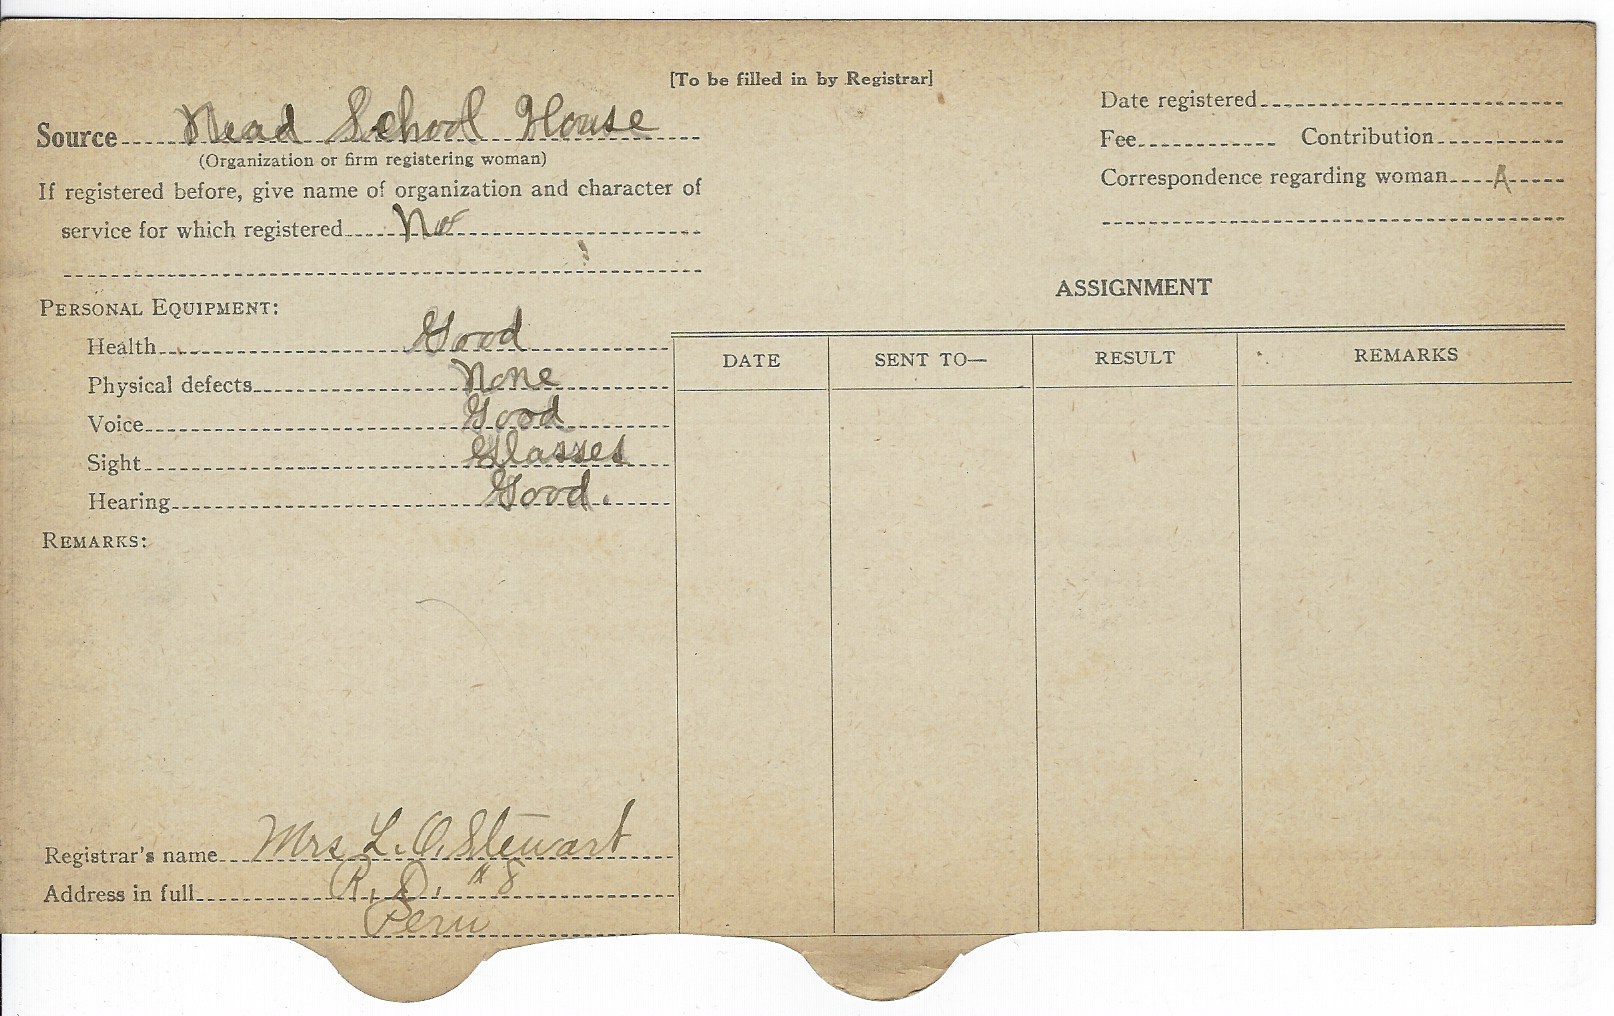 [To be filled in by Registrar]
Source Nead School House
(Organization or firm registering woman)
If registered before, give name of organization and character of
service for which registered No
PERSONAL EQUIPMENT:
Health Good
Physical defects None
Voice Good
Sight Glasses
Hearing Good.
REMARKS:
Registrar's name Mrs L. O. Stewart
Address in full R. D. #8
Peru
Date registered
Fee Contribution
Correspondence regarding woman A
ASSIGNMENT
DATE SENT TO— RESULT REMARKS